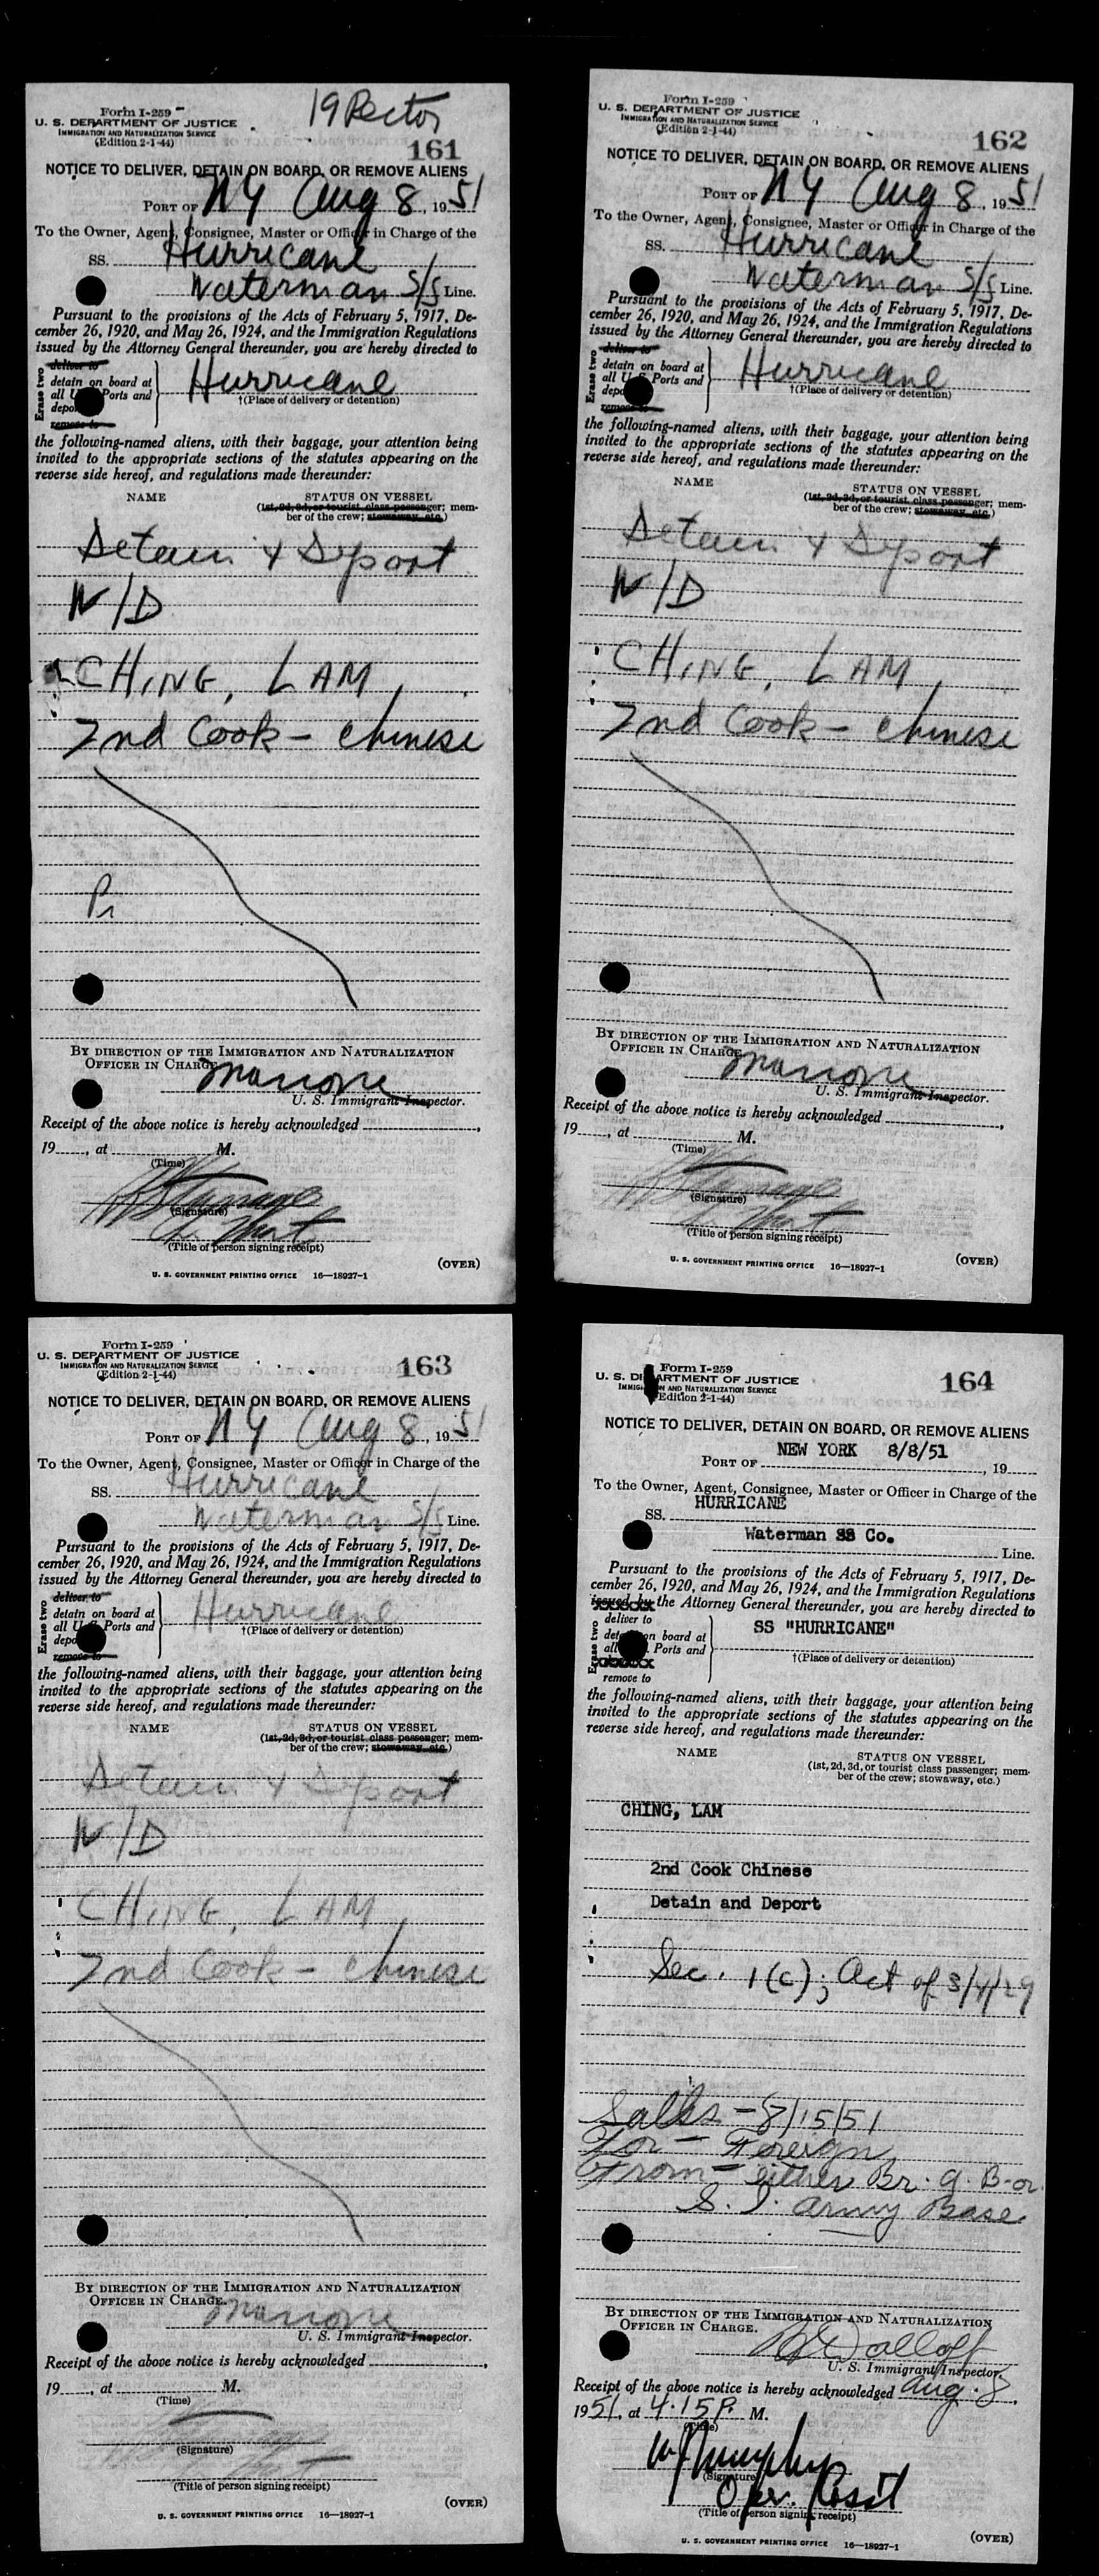 Form I-259
U. S. DEPARTMENT OF JUSTICE
IMMIGRATION AND NATURALIZATION SERVICE
(Edition 2-1-44)
19 Rector
161
NOTICE TO DELIVER, DETAIN ON BOARD, OR REMOVE ALIENS
PORT OF NY Aug 8, 1951
To the Owner, Agent, Consignee, Master or Officer in Charge of the
SS. Hurricane
Waterman S/S Line.
Pursuant to the provisions of the Acts of February 5, 1917, De-
cember 26, 1920, and May 26, 1924, and the Immigration Regulations
issued by the Attorney General thereunder, you are hereby directed to
Erase two
deliver to
detain on board at
all U. S. Ports and
deport
remove to
Hurricane
†(Place of delivery or detention)
the following-named aliens, with their baggage, your attention being
invited to the appropriate sections of the statutes appearing on the
reverse side hereof, and regulations made thereunder:
NAME STATUS ON VESSEL
(1st, 2d, 3d, or tourist class passenger; mem-
ber of the crew; stowaway, etc.)
Detain & Deport
N/D
CHING, LAM,
2nd Cook - Chinese
BY DIRECTION OF THE IMMIGRATION AND NATURALIZATION
OFFICER IN CHARGE.
U. S. Immigrant Inspector.
Receipt of the above notice is hereby acknowledged
19, at M.
(Time)
(Signature)
(Title of person signing receipt)
(OVER)
U. S. GOVERNMENT PRINTING OFFICE 16—18927-1
Form I-259
U. S. DEPARTMENT OF JUSTICE
IMMIGRATION AND NATURALIZATION SERVICE
(Edition 2-1-44)
162
NOTICE TO DELIVER, DETAIN ON BOARD, OR REMOVE ALIENS
PORT OF NY Aug 8, 1951
To the Owner, Agent, Consignee, Master or Officer in Charge of the
SS. Hurricane
Waterman S/S Line.
Pursuant to the provisions of the Acts of February 5, 1917, De-
cember 26, 1920, and May 26, 1924, and the Immigration Regulations
issued by the Attorney General thereunder, you are hereby directed to
Erase two
deliver to
detain on board at
all U. S. Ports and
deport
remove to
Hurricane
†(Place of delivery or detention)
the following-named aliens, with their baggage, your attention being
invited to the appropriate sections of the statutes appearing on the
reverse side hereof, and regulations made thereunder:
NAME STATUS ON VESSEL
(1st, 2d, 3d, or tourist class passenger; mem-
ber of the crew; stowaway, etc.)
Detain & Deport
N/D
CHING, LAM,
2nd Cook - Chinese
BY DIRECTION OF THE IMMIGRATION AND NATURALIZATION
OFFICER IN CHARGE.
U. S. Immigrant Inspector.
Receipt of the above notice is hereby acknowledged
19, at M.
(Time)
(Signature)
(Title of person signing receipt)
(OVER)
U. S. GOVERNMENT PRINTING OFFICE 16—18927-1
Form I-259
U. S. DEPARTMENT OF JUSTICE
IMMIGRATION AND NATURALIZATION SERVICE
(Edition 2-1-44)
163
NOTICE TO DELIVER, DETAIN ON BOARD, OR REMOVE ALIENS
PORT OF NY Aug 8, 1951
To the Owner, Agent, Consignee, Master or Officer in Charge of the
SS. Hurricane
Waterman S/S Line.
Pursuant to the provisions of the Acts of February 5, 1917, De-
cember 26, 1920, and May 26, 1924, and the Immigration Regulations
issued by the Attorney General thereunder, you are hereby directed to
Erase two
deliver to
detain on board at
all U. S. Ports and
deport
remove to
Hurricane
†(Place of delivery or detention)
the following-named aliens, with their baggage, your attention being
invited to the appropriate sections of the statutes appearing on the
reverse side hereof, and regulations made thereunder:
NAME STATUS ON VESSEL
(1st, 2d, 3d, or tourist class passenger; mem-
ber of the crew; stowaway, etc.)
Detain & Deport
N/D
CHING, LAM,
2nd Cook - Chinese
BY DIRECTION OF THE IMMIGRATION AND NATURALIZATION
OFFICER IN CHARGE.
U. S. Immigrant Inspector.
Receipt of the above notice is hereby acknowledged
19, at M.
(Time)
(Signature)
(Title of person signing receipt)
(OVER)
U. S. GOVERNMENT PRINTING OFFICE 16—18927-1
Form I-259
U. S. DEPARTMENT OF JUSTICE
IMMIGRATION AND NATURALIZATION SERVICE
(Edition 2-1-44)
164
NOTICE TO DELIVER, DETAIN ON BOARD, OR REMOVE ALIENS
NEW YORK 8/8/51
PORT OF, 19
To the Owner, Agent, Consignee, Master or Officer in Charge of the
SS. HURRICANE
Waterman SS Co.
Line.
Pursuant to the provisions of the Acts of February 5, 1917, De-
cember 26, 1920, and May 26, 1924, and the Immigration Regulations
issued by the Attorney General thereunder, you are hereby directed to
Erase two
deliver to
detain on board at
all Ports and
xxxxxxx
remove to
SS "HURRICANE"
†(Place of delivery or detention)
the following-named aliens, with their baggage, your attention being
invited to the appropriate sections of the statutes appearing on the
reverse side hereof, and regulations made thereunder:
NAME STATUS ON VESSEL
(1st, 2d, 3d, or tourist class passenger; mem-
ber of the crew; stowaway, etc.)
CHING, LAM
2nd Cook Chinese
Detain and Deport
Sec. 1(c); Act of 3/4/29
Sails - 8/15/51
For - Foreign
From - either Br. g. B. or
S. I. Army Base
BY DIRECTION OF THE IMMIGRATION AND NATURALIZATION
OFFICER IN CHARGE.
U. S. Immigrant Inspector.
Receipt of the above notice is hereby acknowledged Aug. 8,
1951, at 4:15 P. M.
(Time)
(Signature)
Oper. Asst
(Title of person signing receipt)
(OVER)
U. S. GOVERNMENT PRINTING OFFICE 16—18927-1